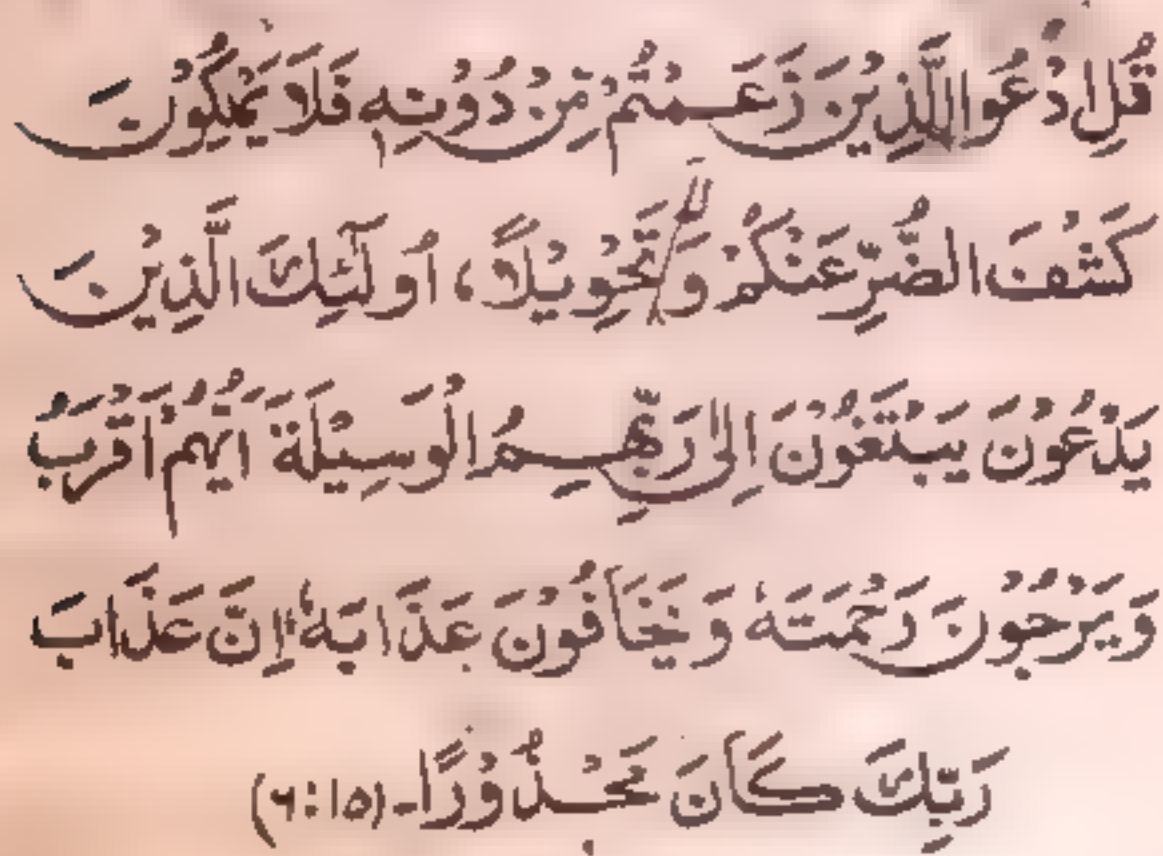 قُلِ ادْعُوا الَّذِيْنَ زَعَمْتُمْ مِّنْ دُوْنِهٖ فَلَا يَمْلِكُوْنَ
كَشْفَ الضُّرِّ عَنْكُمْ وَلَا تَحْوِيْلًا، اُولٰٓئِكَ الَّذِيْنَ
يَدْعُوْنَ يَبْتَغُوْنَ اِلٰى رَبِّهِمُ الْوَسِيْلَةَ اَيُّهُمْ اَقْرَبُ
وَيَرْجُوْنَ رَحْمَتَهٗ وَيَخَافُوْنَ عَذَابَهٗ اِنَّ عَذَابَ
رَبِّكَ كَانَ مَحْذُوْرًا۔ (١٥:٦)